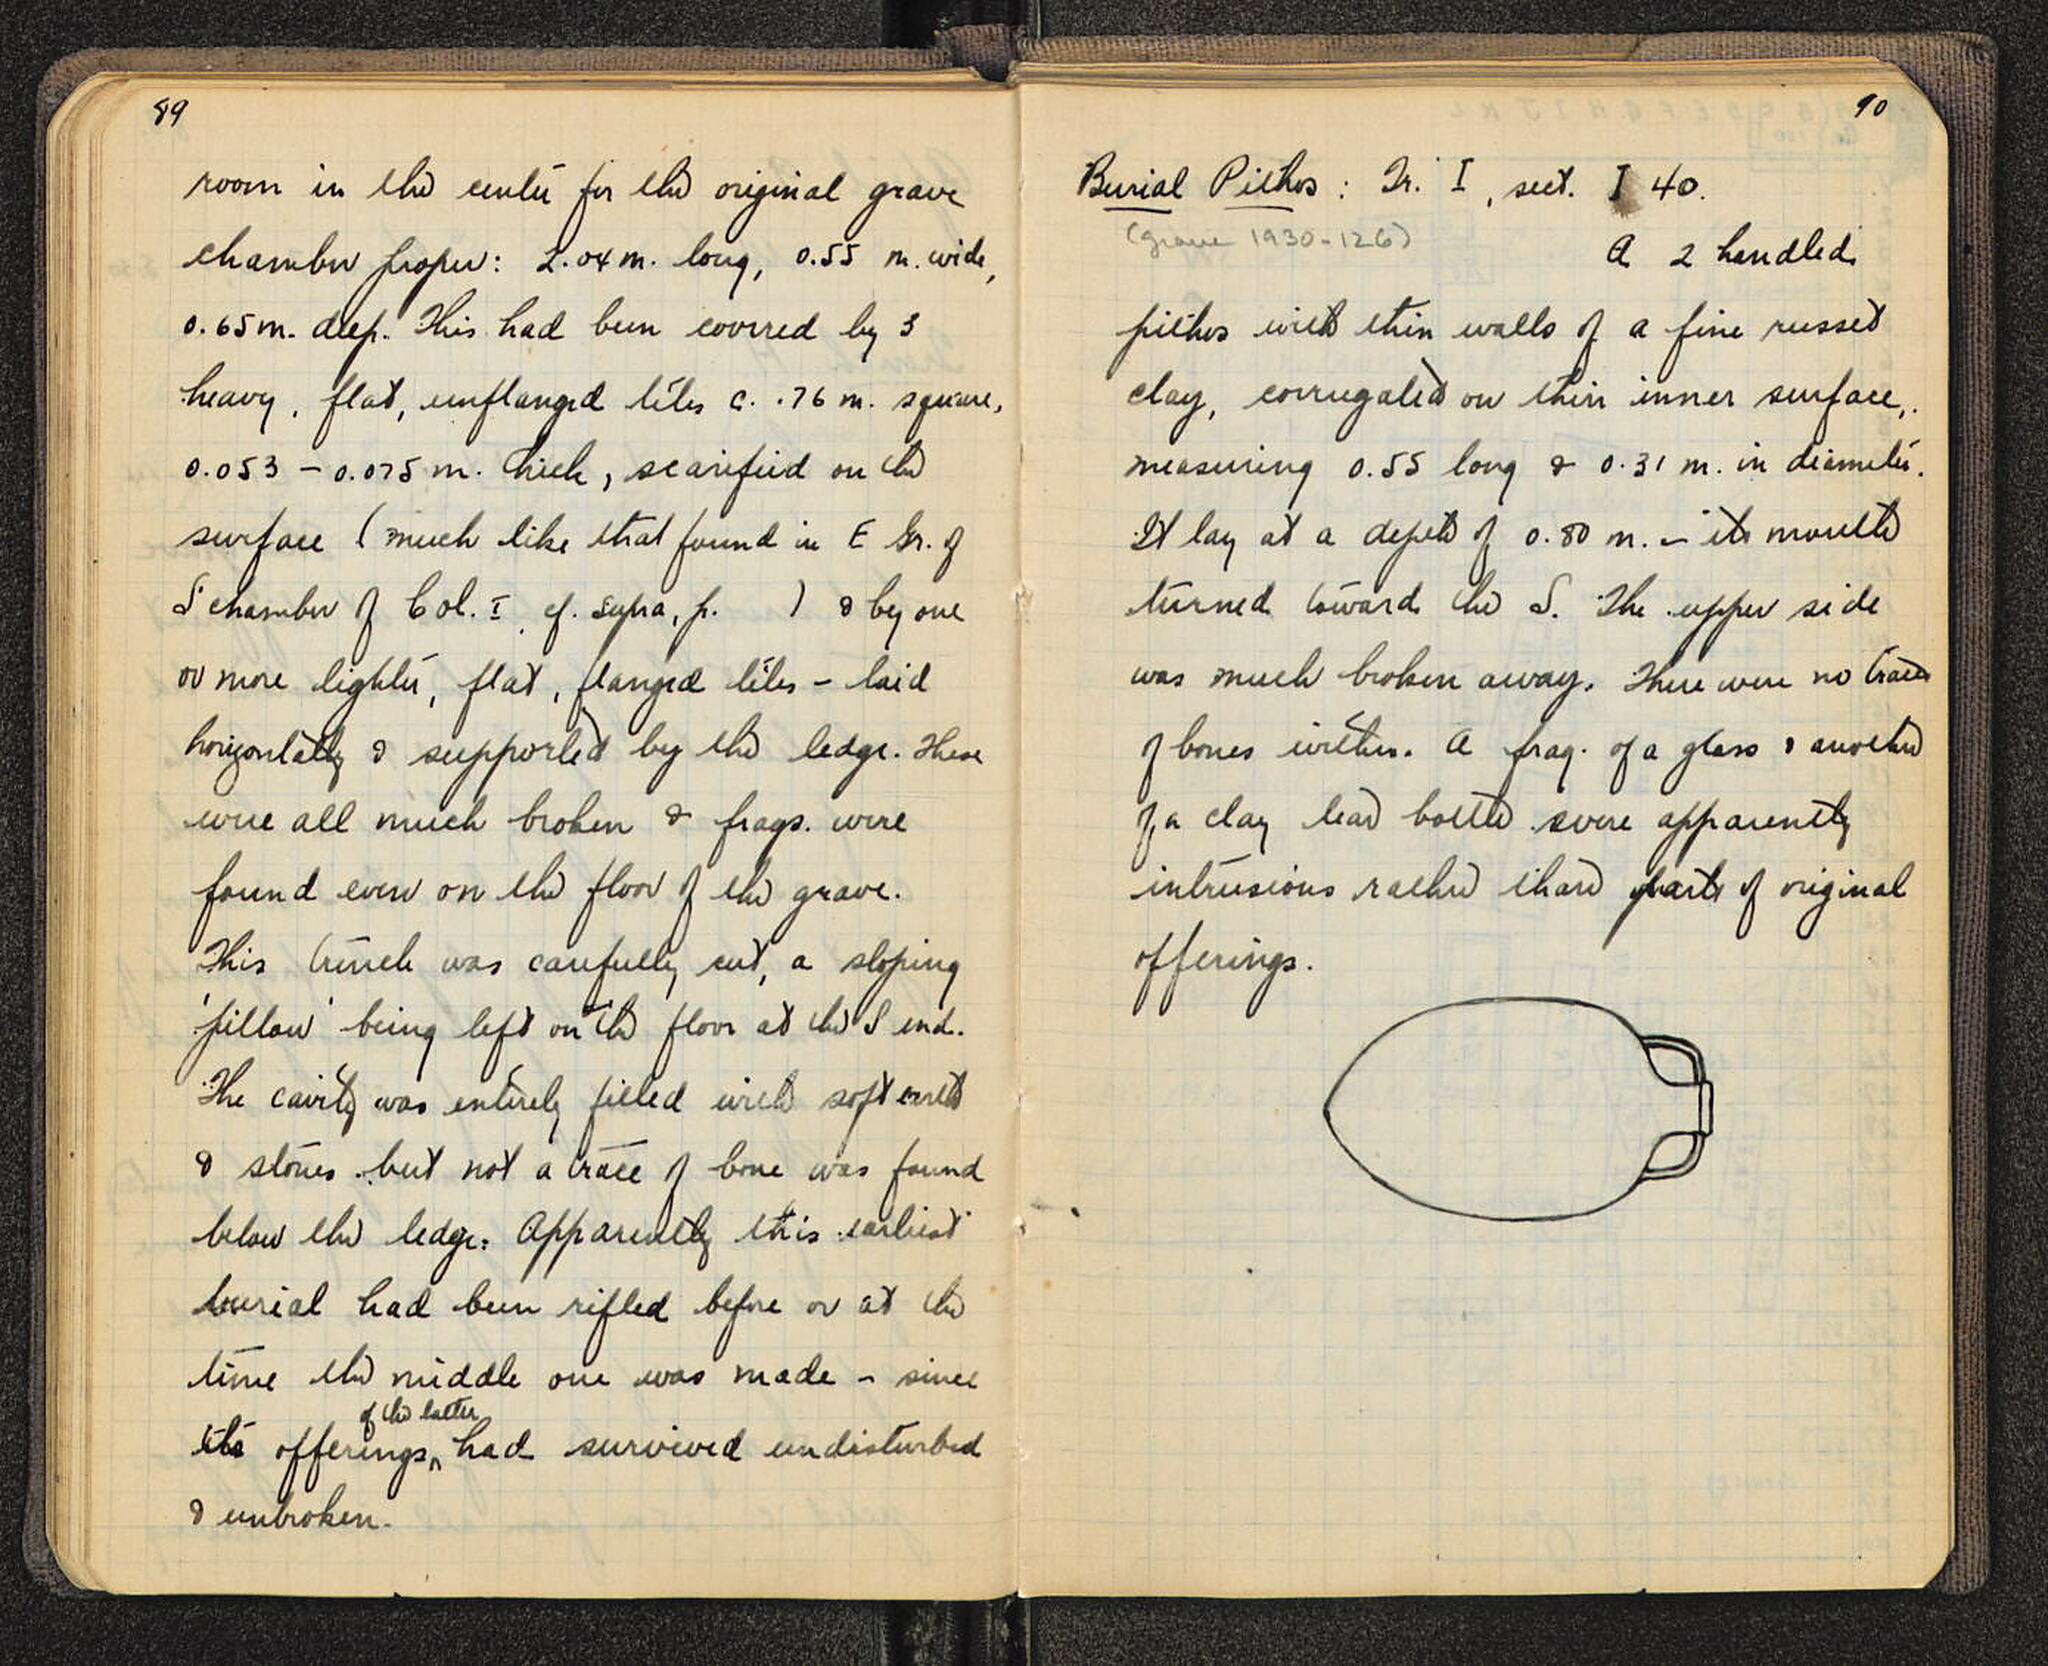 89
room in the center for the original grave
chamber proper: 2.04 m. long, 0.55 m. wide,
0.65 m. deep. This had been covered by 3
heavy, flat, unflanged tiles c. .76 m. square,
0.053 - 0.075 m. thick, scarified on the
surface (much like that found in E Gr. of
S chamber of Col. I, cf. supra, p.      ) & by one
or more lighter, flat, flanged tiles - laid
horizontally & supported by the ledge. These
were all much broken & frags. were
found even on the floor of the grave.
This trench was carefully cut, a sloping
'pillow' being left on the floor at the S end.
The cavity was entirely filled with soft earth
& stones but not a trace of bone was found
below the ledge. Apparently this earliest
burial had been rifled before or at the
time the middle one was made - since
of the latter
the offerings ^ had survived undisturbed
& unbroken.
90
Burial Pithos: Tr. I, sect. I 40.
(grave 1930-126)
A 2 handled
pithos with thin walls of a fine russet
clay, corrugated on their inner surface,
measuring 0.55 long & 0.31 m. in diameter.
It lay at a depth of 0.80 m. - its mouth
turned toward the S. The upper side
was much broken away. There were no traces
of bones within. A frag. of a glass & another
of a clay tear bottle were apparently
intrusions rather than parts of original
offerings.